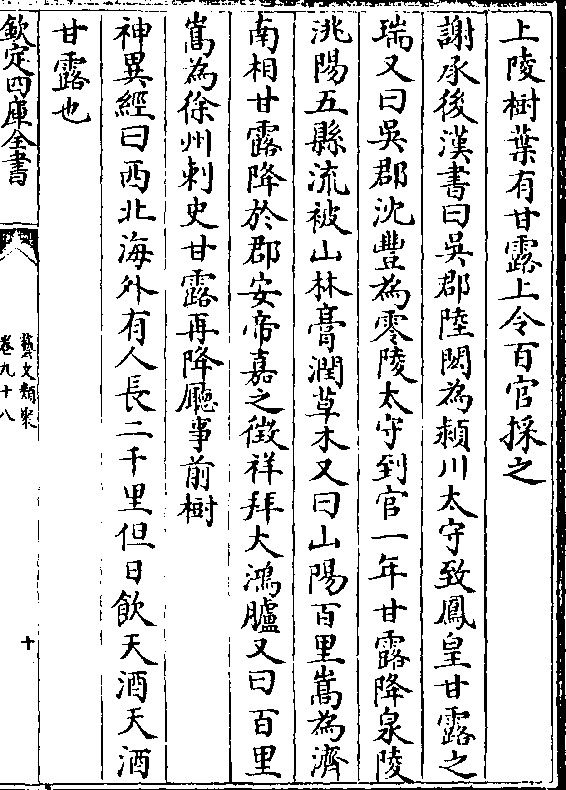 上陵樹葉有甘露上令百官採之
謝承後漢書曰吳郡陸閎為潁川太守致鳳皇甘露之
瑞又曰吳郡沈豐為零陵太守到官一年甘露降泉陵
洮陽五縣流被山林膏潤草木又曰山陽百里嵩為濟
南相甘露降於郡安帝嘉之徵祥拜大鴻臚又曰百里
嵩為徐州刺史甘露再降廳事前樹
神異經曰西北海外有人長二千里但日飲天酒天酒
甘露也
欽定四庫全書
藝文類聚
卷九十八
十